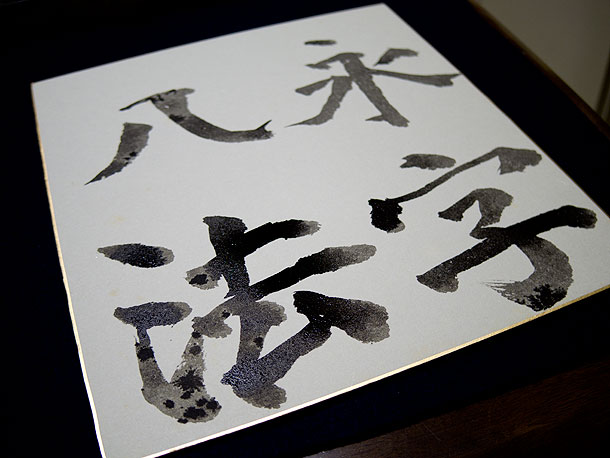 永字
八法